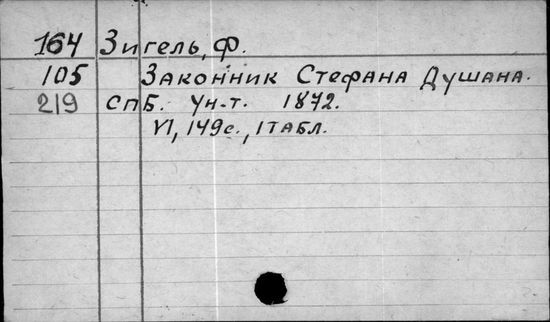 164 Зигель, Ф.
105 Законник Стефана Душана.
219 СПБ. Ун-т. 1872.
VI, 149с., 1 табл.